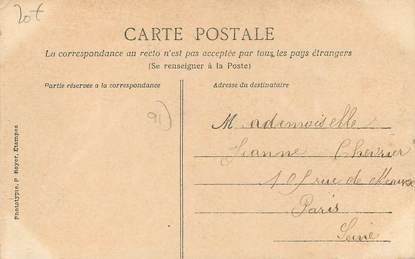 20f
CARTE POSTALE
La correspondance au recto n'est pas acceptée par tous les pays étrangers
(Se renseigner à la Poste)
Partie réservée a la correspondance
Adresse du destinataire
91
Mademoiselle
Jeanne
rue de Meaux
Paris
Seine
Phototypie, P. Royer, Etampes